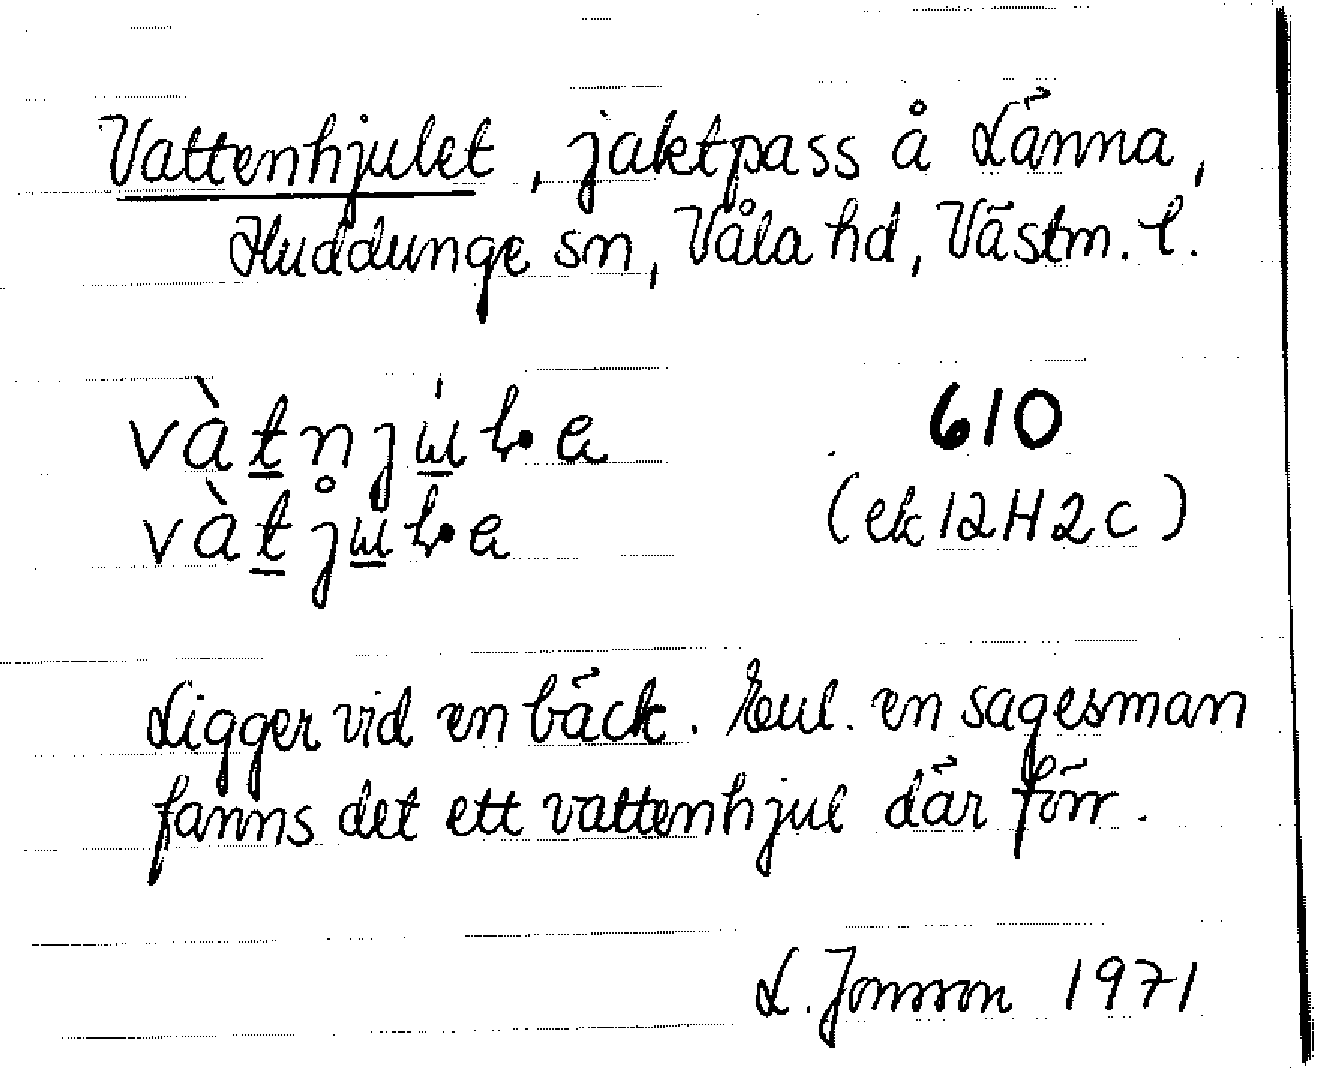 Vattenhjulet, jaktpass å Länna,
Huddunge sn, Våla hd, Västm. l.
610
(ek 12H2c)
Ligger vid en bäck. Eul. en sagesman
fanns det ett vattenhjul där förr.
L. Jonsson 1971